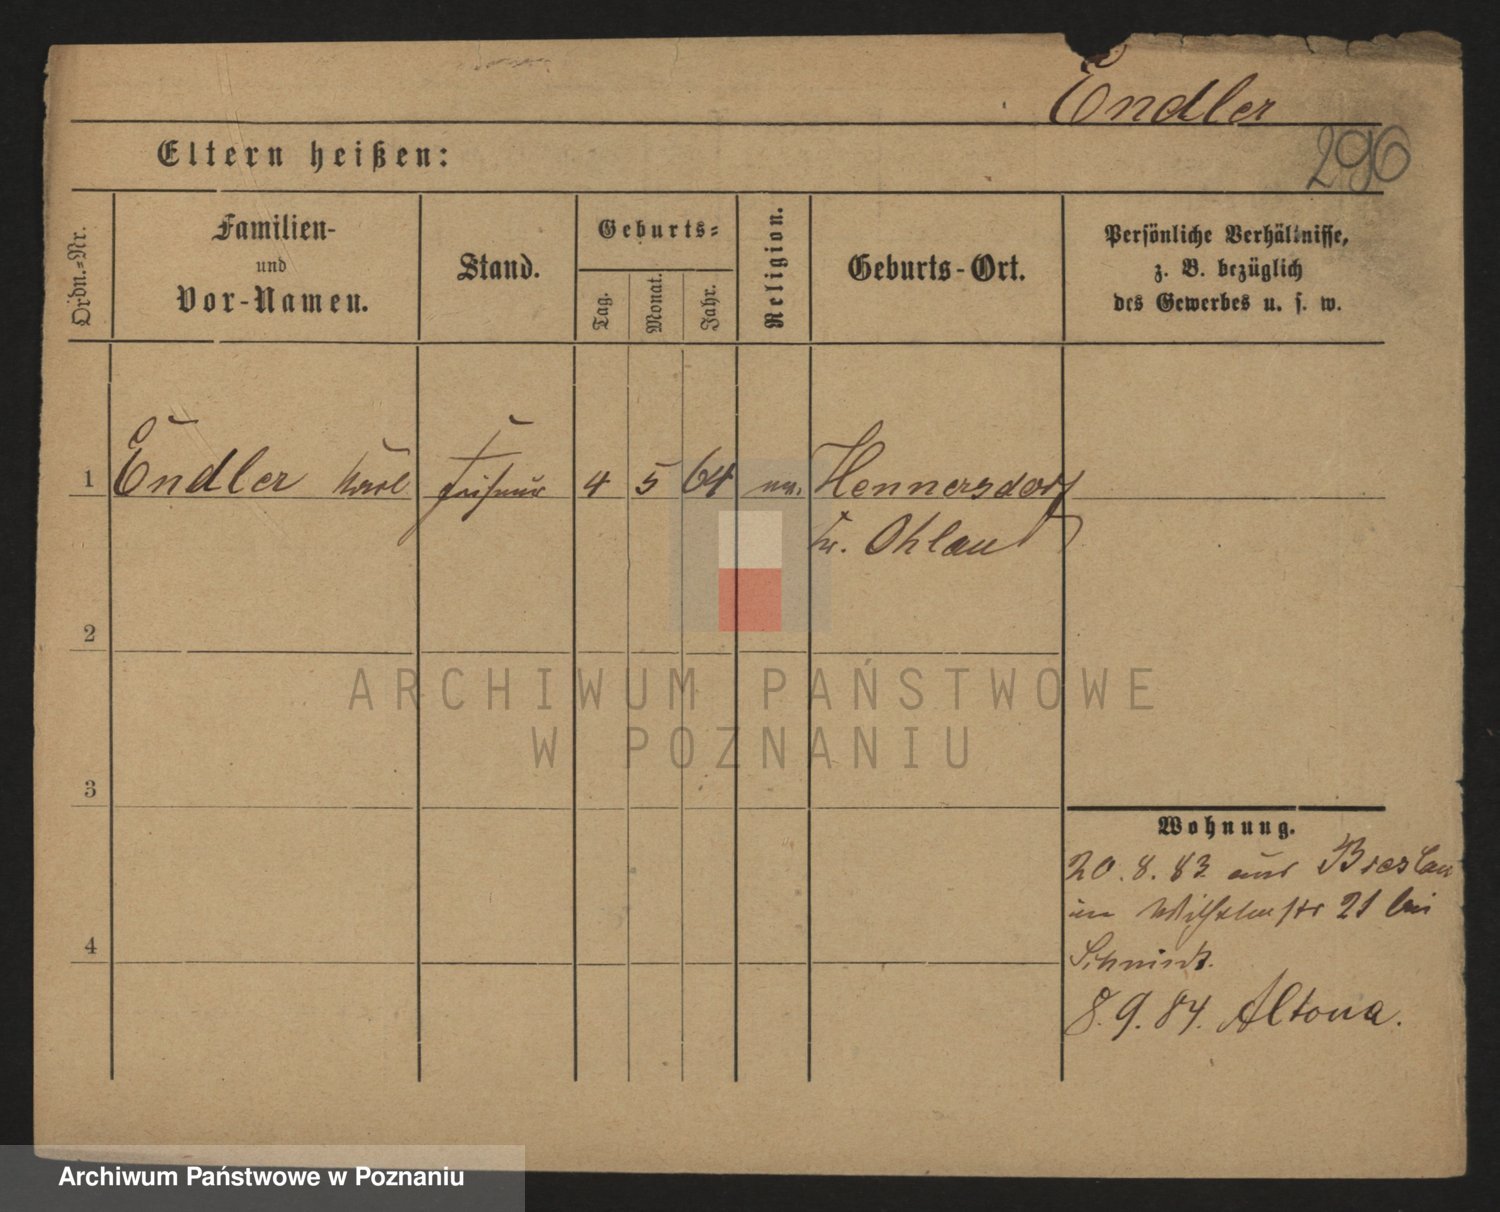 Endler
296
Eltern heißen:
Ordn.=Nr.
Familien-
und
Vor-Namen.
Stand.
Geburts=
Tag.
Monat.
Jahr.
Religion.
Geburts-Ort.
Persönliche Verhältnisse,
z. B. bezüglich
des Gewerbes u. s. w.
1 Endler Karl Friseur 4 5 64 ev. Hennersdorf
Kr. Ohlau
2
3
4
Wohnung.
20.8.83 aus Breslau
in Wilhelmstr 21 bei
Schmidt.
8.9.84. Altona.
ARCHIWUM PAŃSTWOWE
W POZNANIU
Archiwum Państwowe w Poznaniu